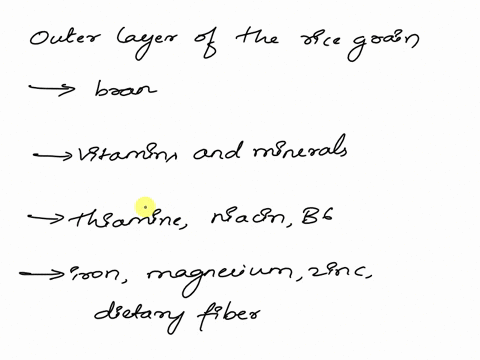 Outer layer of the rice grain
→ bran
→ vitamins and minerals
→ thiamine, niacin, B6
→ iron, magnesium, zinc,
dietary fiber